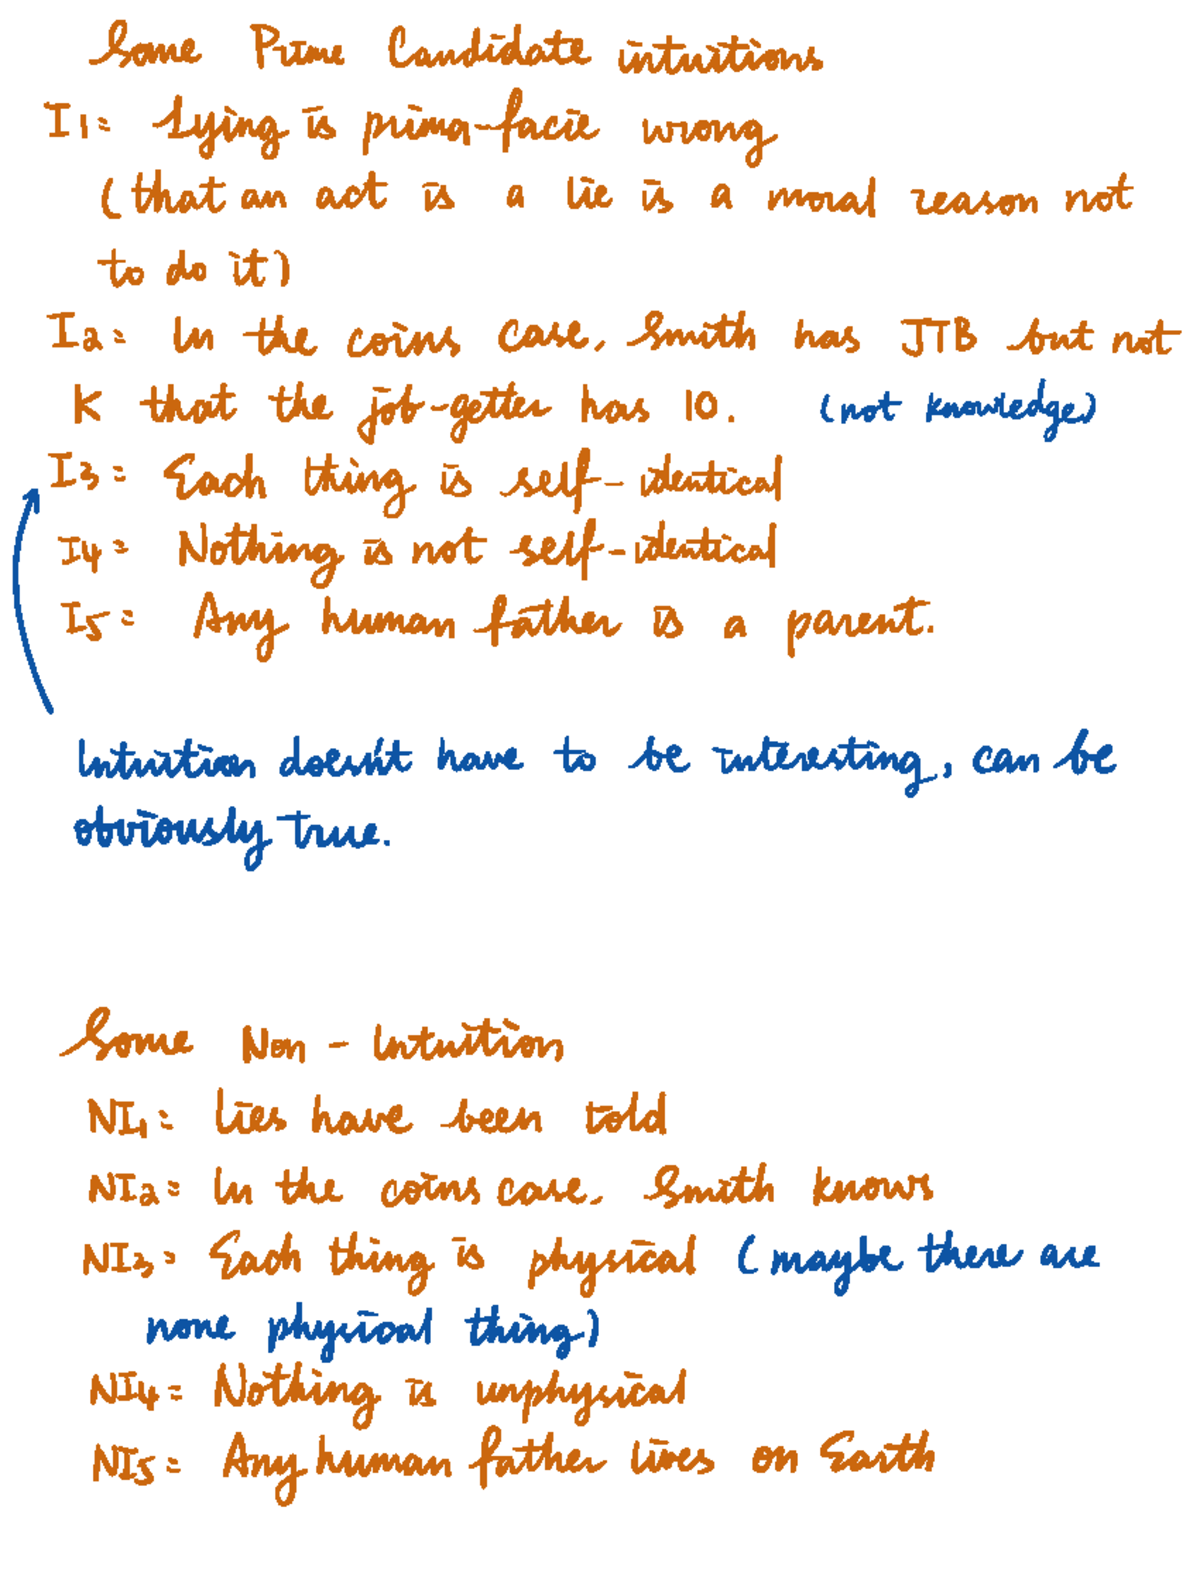 Some Prime Candidate intuitions
I1: Lying is prima-facie wrong
(that an act is a lie is a moral reason not
to do it)
I2: In the coins case, Smith has JTB but not
K that the job-getter has 10. (not knowledge)
I3: Each thing is self-identical
I4: Nothing is not self-identical
I5: Any human father is a parent.
Intuition doesn't have to be interesting, can be
obviously true.
Some Non-Intuition
NI1: Lies have been told
NI2: In the coins case, Smith knows
NI3: Each thing is physical (maybe there are
none physical thing)
NI4: Nothing is unphysical
NI5: Any human father lives on Earth